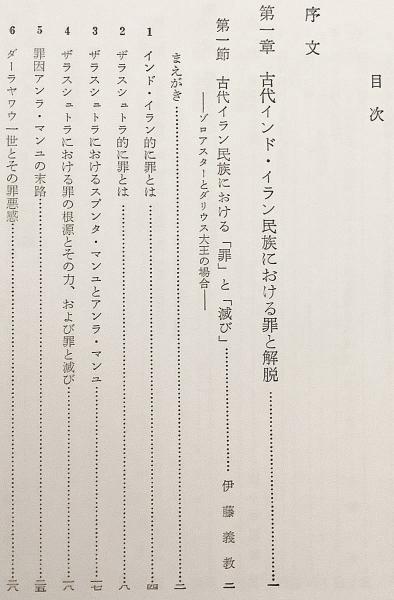 目次
序文
第一章 古代インド・イラン民族における罪と解脱……一
第一節 古代イラン民族における「罪」と「滅び」……伊藤義教 二
――ゾロアスターとダリウス大王の場合――
まえがき……二
1 インド・イラン的に罪とは……四
2 ザラスシュトラ的に罪とは……八
3 ザラスシュトラにおけるスプンタ・マンユとアンラ・マンユ……一七
4 ザラスシュトラにおける罪の根源とその力、および罪と滅び……一八
5 罪因アンラ・マンユの末路……二五
6 ダーラヤワウ一世とその罪悪感……二六